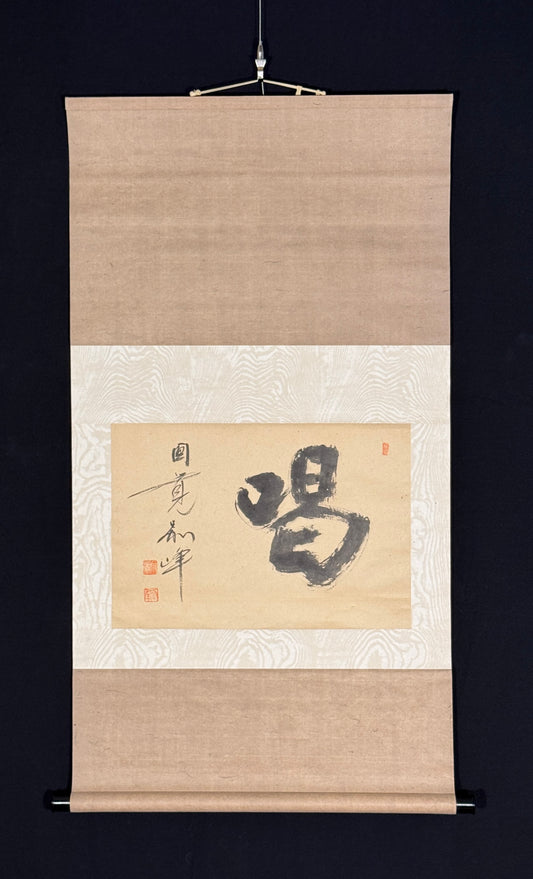 喝
圓覚別峰